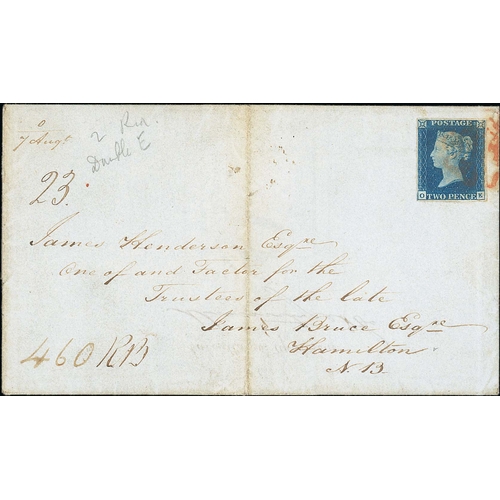 0
7 Augt
2 Ria.
Double E
23.
POSTAGE
O K
TWO PENCE
James Henderson Esqre
One of and Factor for the
Trustees of the late
James Bruce Esqre
Hamilton
N.B.
460 RB